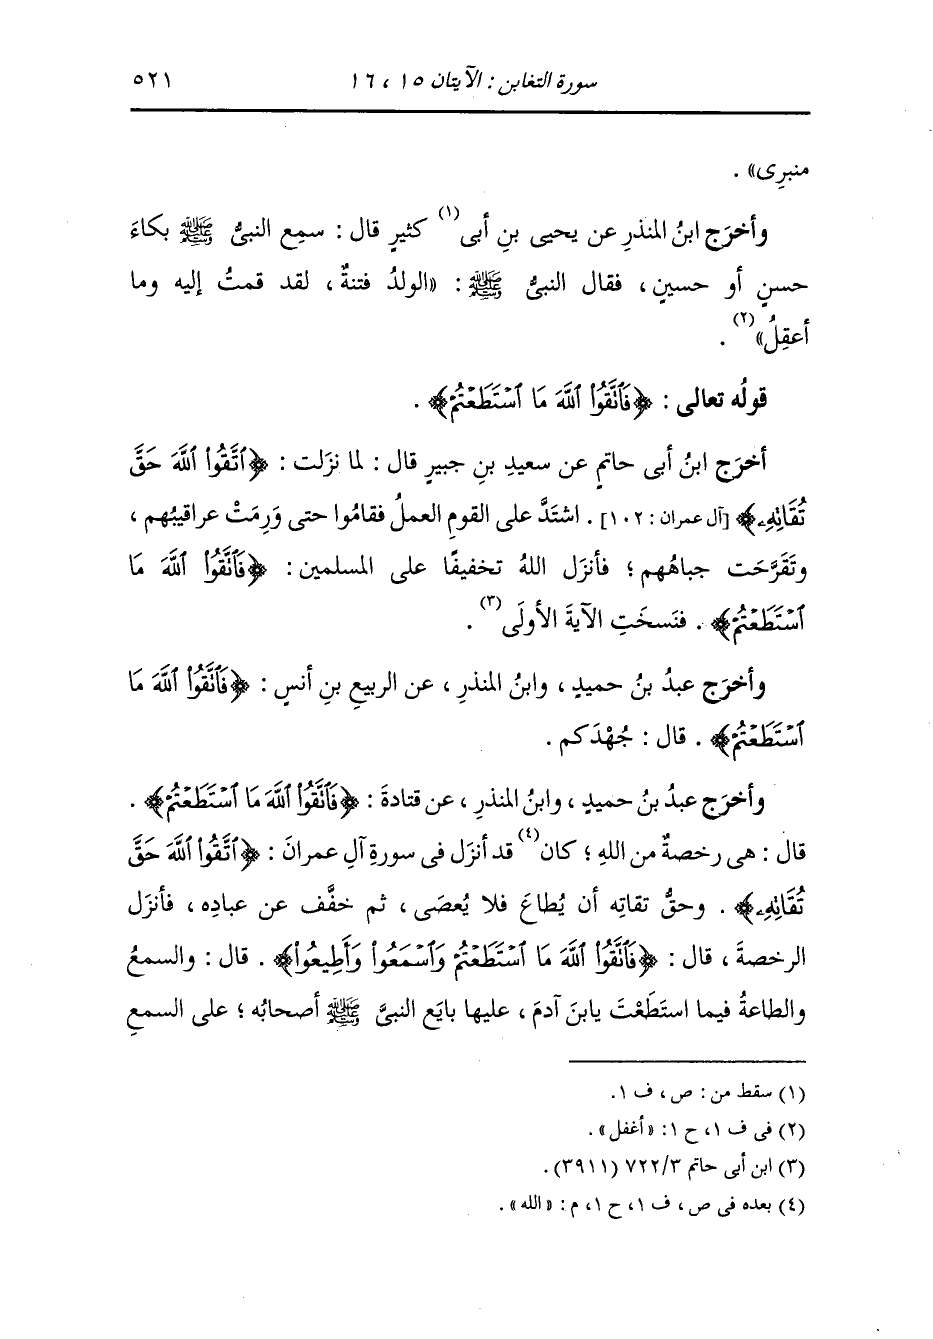 سورة التغابن : الآيتان ١٥ ، ١٦ ٥٢١
منبرِى» .
وأخرَج ابنُ المنذرِ عن يحيى بنِ أبى(١) كثيرٍ قال : سمِع النبىُّ ﷺ بكاءَ
حسنٍ أو حسينٍ ، فقال النبىُّ ﷺ : «الولدُ فتنةٌ ، لقد قمتُ إليه وما
أعقِلُ»(٢) .
قولُه تعالى : ﴿فَٱتَّقُوا۟ ٱللَّهَ مَا ٱسْتَطَعْتُمْ﴾ .
أخرَج ابنُ أبى حاتمٍ عن سعيدِ بنِ جبيرٍ قال : لما نزَلت : ﴿ٱتَّقُوا۟ ٱللَّهَ حَقَّ
تُقَاتِهِۦ﴾ [آل عمران : ١٠٢] . اشتَدَّ على القومِ العملُ فقامُوا حتى وَرِمَتْ عراقيبُهم ،
وتَقَرَّحَت جباهُهم ؛ فأنزَل اللهُ تخفيفًا على المسلمين : ﴿فَٱتَّقُوا۟ ٱللَّهَ مَا
ٱسْتَطَعْتُمْ﴾ . فنَسخَتِ الآيةَ الأولَى(٣) .
وأخرَج عبدُ بنُ حميدٍ ، وابنُ المنذرِ ، عن الربيعِ بنِ أنسٍ : ﴿فَٱتَّقُوا۟ ٱللَّهَ مَا
ٱسْتَطَعْتُمْ﴾ . قال : جُهْدَكم .
وأخرَج عبدُ بنُ حميدٍ ، وابنُ المنذرِ ، عن قتادةَ : ﴿فَٱتَّقُوا۟ ٱللَّهَ مَا ٱسْتَطَعْتُمْ﴾ .
قال : هى رخصةٌ من اللهِ ؛ كان(٤) قد أنزَل فى سورةِ آلِ عمرانَ : ﴿ٱتَّقُوا۟ ٱللَّهَ حَقَّ
تُقَاتِهِۦ﴾ . وحقُّ تقاتِه أن يُطاعَ فلا يُعصَى ، ثم خفَّف عن عبادِه ، فأنزَل
الرخصةَ ، قال : ﴿فَٱتَّقُوا۟ ٱللَّهَ مَا ٱسْتَطَعْتُمْ وَٱسْمَعُوا۟ وَأَطِيعُوا۟﴾ . قال : والسمعُ
والطاعةُ فيما استَطَعْتَ يابنَ آدمَ ، عليها بايَع النبىَّ ﷺ أصحابُه ؛ على السمعِ
(١) سقط من : ص ، ف ١.
(٢) فى ف ١، ح ١: «أغفل» .
(٣) ابن أبى حاتم ٣/ ٧٢٢ (٣٩١١) .
(٤) بعده فى ص ، ف ١، ح ١، م : «الله» .